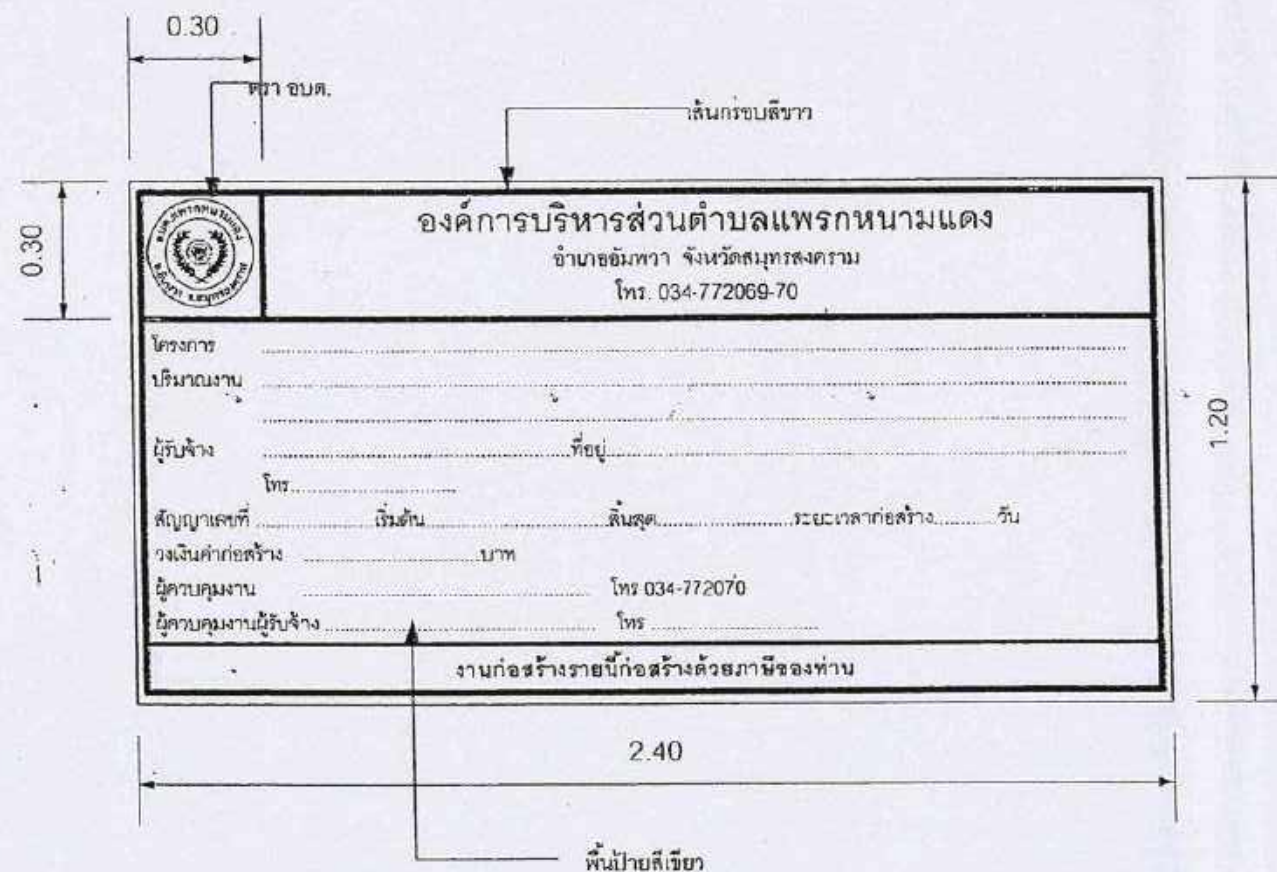 0.30
ตรา อบต.
เส้นกรอบสีขาว
0.30
องค์การบริหารส่วนตำบลแพรกหนามแดง
อำเภออัมพวา จังหวัดสมุทรสงคราม
โทร. 034-772069-70
อบต.แพรกหนามแดง
อ.อัมพวา จ.สมุทรสงคราม
โครงการ
ปริมาณงาน
ผู้รับจ้าง ที่อยู่
โทร
สัญญาเลขที่ เริ่มต้น สิ้นสุด ระยะเวลาก่อสร้าง วัน
วงเงินค่าก่อสร้าง บาท
ผู้ควบคุมงาน โทร 034-772070
ผู้ควบคุมงานผู้รับจ้าง โทร
งานก่อสร้างรายนี้ก่อสร้างด้วยภาษีของท่าน
1.20
2.40
พื้นป้ายสีเขียว